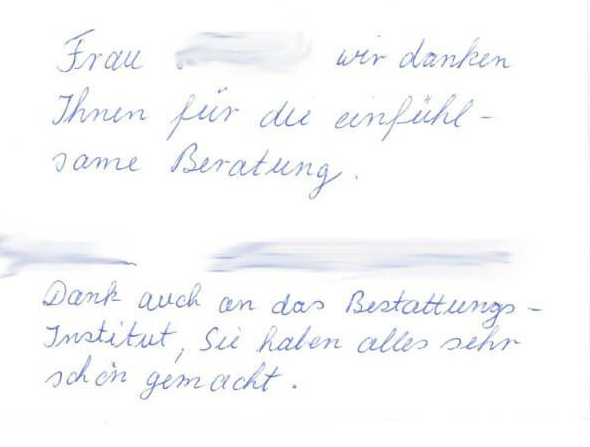 Frau wir danken
Ihnen für die einfühl-
same Beratung.
Dank auch an das Bestattungs-
Institut, Sie haben alles sehr
schön gemacht.